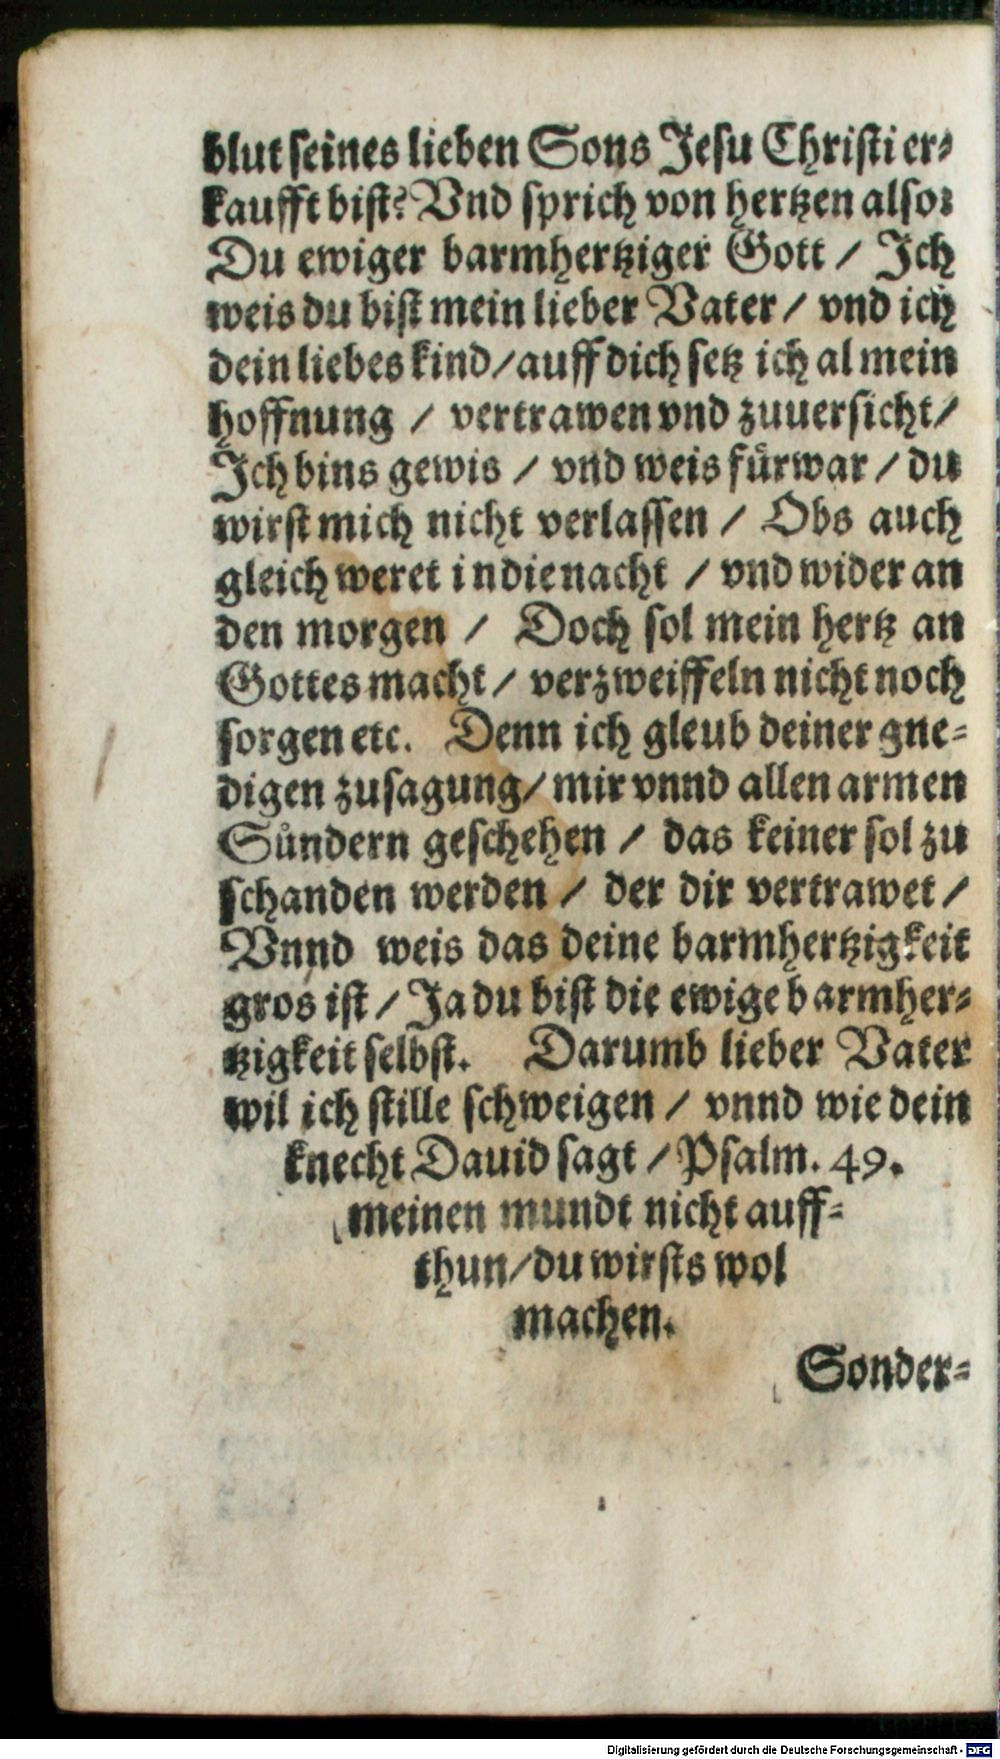 blut seines lieben Sons Jesu Christi er⸗
kaufft bist? Vnd sprich von hertzen also:
Du ewiger barmhertziger Gott / Ich
weis du bist mein lieber Vater / vnd ich
dein liebes kind / auff dich setz ich al mein
hoffnung / vertrawen vnd zuuersicht /
Ich bins gewis / vnd weis fürwar / du
wirst mich nicht verlassen / Obs auch
gleich weret in die nacht / vnd wider an
den morgen / Doch sol mein hertz an
Gottes macht / verzweiffeln nicht noch
sorgen etc. Denn ich gleub deiner gne⸗
digen zusagung / mir vnnd allen armen
Sündern geschehen / das keiner sol zu
schanden werden / der dir vertrawet /
Vnnd weis das deine barmhertzigkeit
gros ist / Ja du bist die ewige barmher⸗
tzigkeit selbst. Darumb lieber Vater
wil ich stille schweigen / vnnd wie dein
knecht Dauid sagt / Psalm. 49.
meinen mundt nicht auff⸗
thun / du wirsts wol
machen.
Sonder⸗
Digitalisierung gefördert durch die Deutsche Forschungsgemeinschaft - DFG